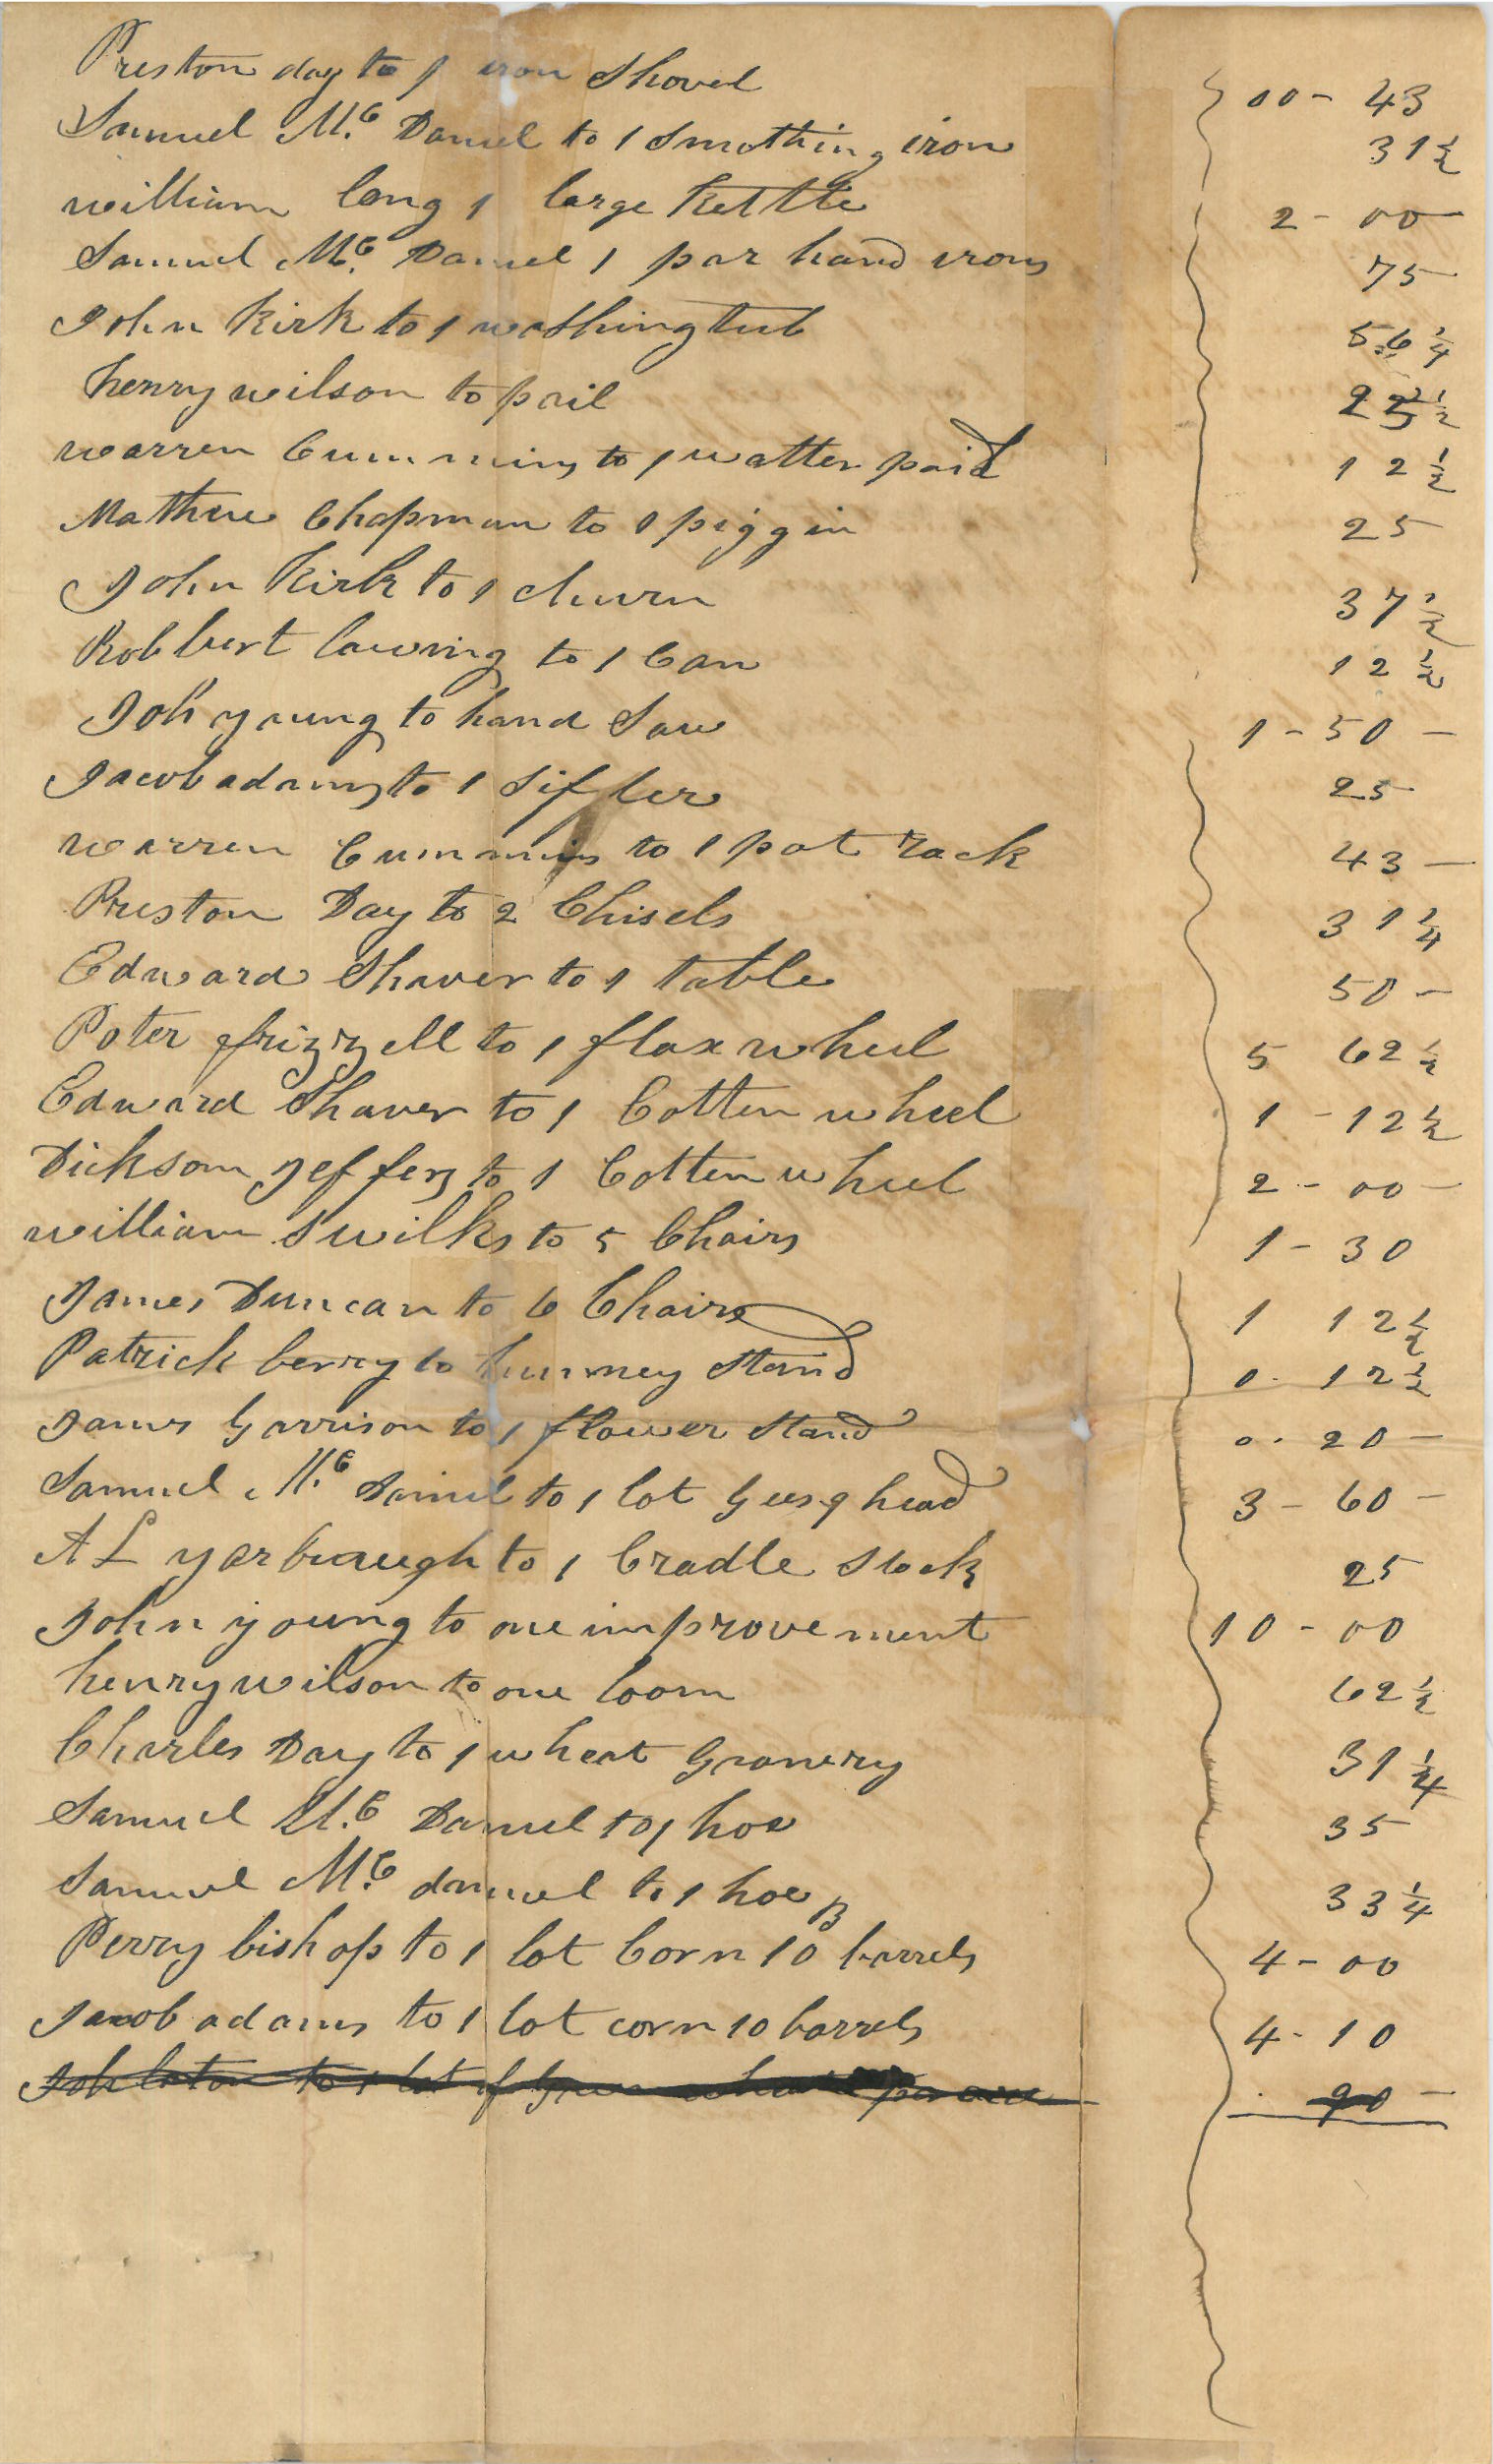 Preston day to 1 iron Shovel 00 - 43
Samuel Mc Daniel to 1 Smothing iron 31 1/2
william long 1 large Kettle 2 - 00
Samuel Mc Daniel 1 par hand irons 75
John Kirk to 1 washing tub 56 1/4
henry wilson to pail 22 1/2
warren Cummins to 1 watter paid 12 1/2
Mathew Chapman to 1 piggin 25
John Kirk to 1 churn 37 1/2
Robburt lawring to 1 Can 12 1/2
Joh young to hand Saw 1 - 50 -
Jacob adams to 1 Sifter 25
warren Cummins to 1 pot rack 43 -
Preston Day to 2 Chisels 31 1/4
Edward Shaver to 1 table 50 -
Poter frizzell to 1 flax wheel 5 62 1/2
Edward Shaver to 1 Cotten wheel 1 - 12 1/2
Dickson Jeffers to 1 Cotten wheel 2 - 00 -
william S wilks to 5 Chairs 1 - 30
James Duncan to 6 Chairs 1 12 1/2
Patrick berry to hunney Stand 0. 12 1/2
James Garrison to 1 flower Stand 0. 20 -
Samuel Mc Daniel to 1 lot Gees 9 head 3 - 60 -
A L yarbraugh to 1 Cradle Stock 25
John young to one improvement 10 - 00
henry wilson to one loom 62 1/2
Charles Day to 1 wheat Granery 31 1/4
Samuel Mc Daniel to 1 hoe 35
Samuel Mc daniel to 1 hoe B 33 1/4
Perry bishop to 1 lot Corn 10 barrels 4 - 00
Jacob adams to 1 lot corn 10 barrels 4 - 10
to 1 lot of 90 -